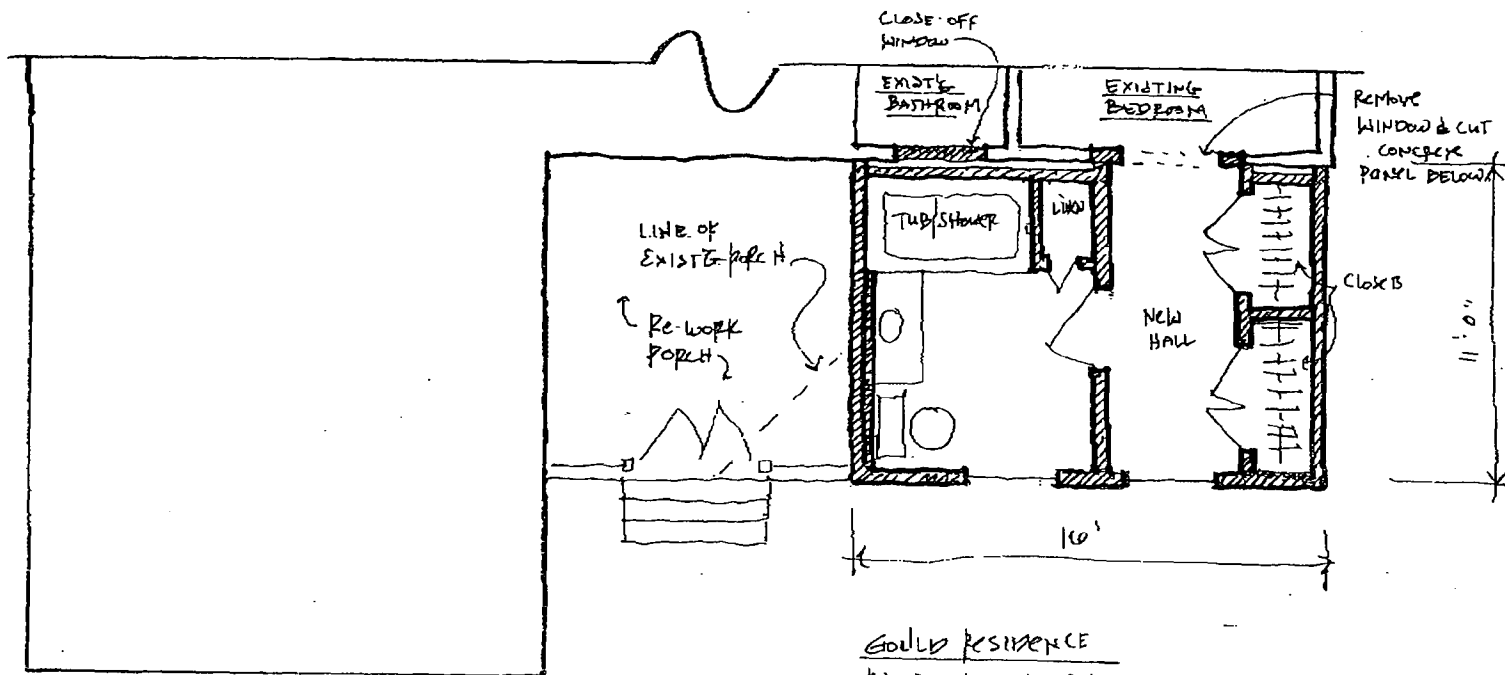 CLOSE-OFF
WINDOW
EXIST'G
BATHROOM
EXISTING
BEDROOM
REMOVE
WINDOW & CUT
CONCRETE
PANEL BELOW
LINE OF
EXIST'G PORCH
TUB/SHOWER
LINEN
RE-WORK
PORCH
NEW
HALL
CLOSETS
11'-0"
16'
GOULD RESIDENCE